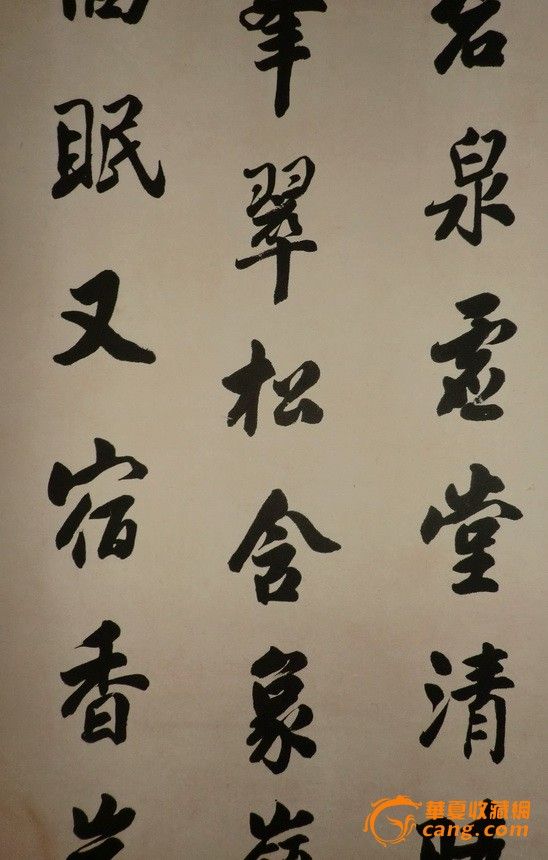 泉虛堂清
翠松含象
眠又宿香
華夏收藏網
cang.com